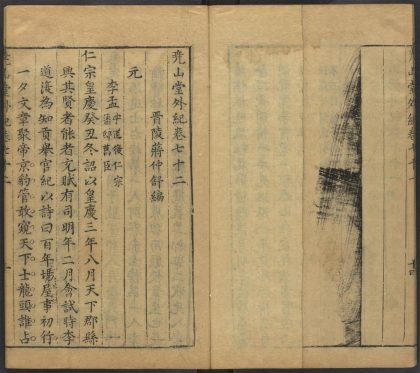 堯山堂外紀卷七十二
晉陵蔣仲舒編
元
李孟 字道復仁宗
潛邸舊臣
仁宗皇慶癸丑冬詔以皇慶三年八月天下郡縣
興其賢者能者充賦有司明年二月會試時李
道復為知貢舉官紀以詩曰百年場屋事初行
一夕文章聚帝京豹管敢窺天下士龍頭誰占